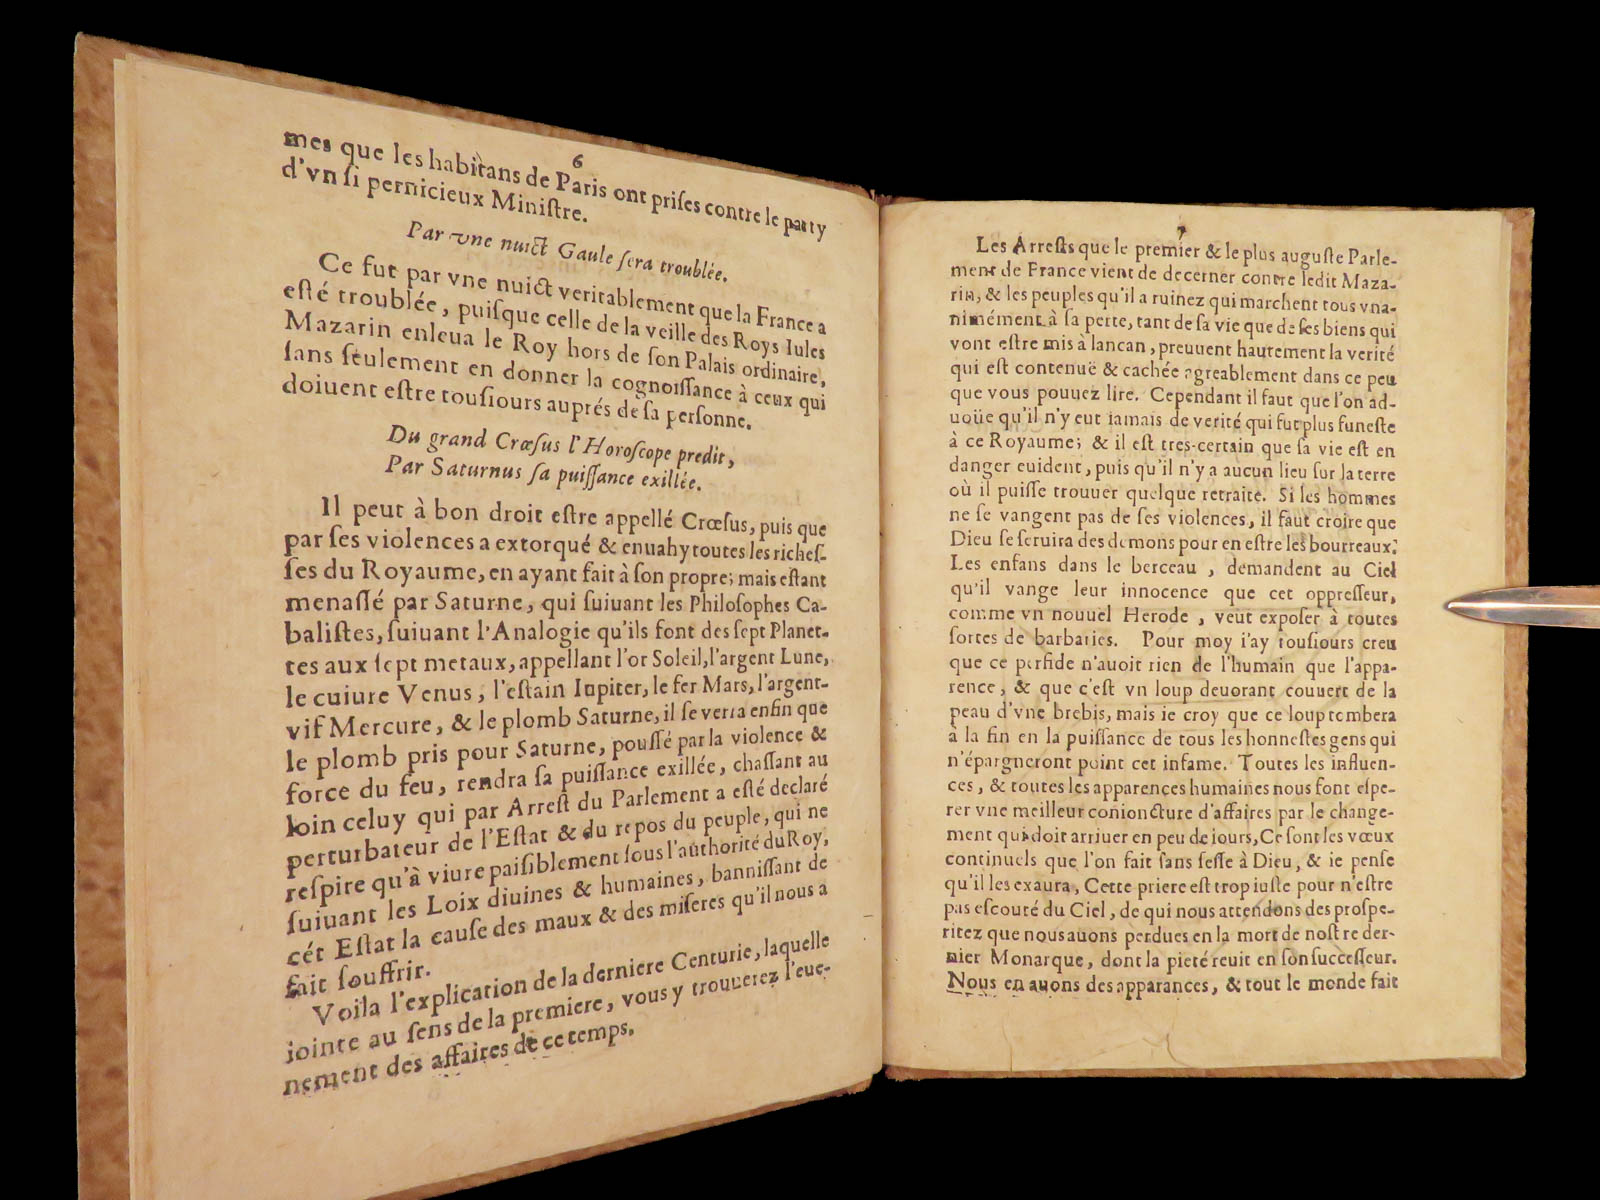 6
mes que les habitans de Paris ont priſes contre le party
d'vn ſi pernicieux Miniſtre.
Par vne nuict Gaule ſera troublée.
Ce fut par vne nuict veritablement que la France a
eſté troublée, puiſque celle de la veille des Roys Iules
Mazarin enleua le Roy hors de ſon Palais ordinaire,
ſans ſeulement en donner la cognoiſſance à ceux qui
doiuent eſtre touſiours auprés de ſa perſonne.
Du grand Crœſus l'Horoſcope predit,
Par Saturnus ſa puiſſance exillée.
Il peut à bon droit eſtre appellé Crœſus, puis que
par ſes violences a extorqué & enuahy toutes les richeſ-
ſes du Royaume, en ayant fait à ſon propre; mais eſtant
menaſſé par Saturne, qui ſuiuant les Philoſophes Ca-
baliſtes, ſuiuant l'Analogie qu'ils font des ſept Planet-
tes aux ſept metaux, appellant l'or Soleil, l'argent Lune,
le cuiure Venus, l'eſtain Iupiter, le fer Mars, l'argent-
vif Mercure, & le plomb Saturne, il ſe verra enfin que
le plomb pris pour Saturne, pouſſé par la violence &
force du feu, rendra ſa puiſſance exillée, chaſſant au
loin celuy qui par Arreſt du Parlement a eſté declaré
perturbateur de l'Eſtat & du repos du peuple, qui ne
reſpire qu'à viure paiſiblement ſous l'authorité du Roy,
ſuiuant les Loix diuines & humaines, banniſſant de
cét Eſtat la cauſe des maux & des miſeres qu'il nous a
fait ſouffrir.
Voila l'explication de la derniere Centurie, laquelle
jointe au ſens de la premiere, vous y trouuerez l'eue-
nement des affaires de ce temps.
7
Les Arreſts que le premier & le plus auguſte Parle-
ment de France vient de decerner contre ledit Maza-
rin, & les peuples qu'il a ruinez qui marchent tous vna-
nimément à ſa perte, tant de ſa vie que de ſes biens qui
vont eſtre mis à lancan, preuuent hautement la verité
qui eſt contenuë & cachée agreablement dans ce peu
que vous pouuez lire. Cependant il faut que l'on ad-
uoüe qu'il n'y eut iamais de verité qui fut plus funeſte
à ce Royaume; & il eſt tres-certain que ſa vie eſt en
danger euident, puis qu'il n'y a aucun lieu ſur la terre
où il puiſſe trouuer quelque retraite. Si les hommes
ne ſe vangent pas de ſes violences, il faut croire que
Dieu ſe ſeruira des demons pour en eſtre les bourreaux.
Les enfans dans le berceau, demandent au Ciel
qu'il vange leur innocence que cet oppreſſeur,
comme vn nouuel Herode, veut expoſer à toutes
ſortes de barbaries. Pour moy i'ay touſiours creu
que ce perfide n'auoit rien de l'humain que l'appa-
rence, & que c'eſt vn loup deuorant couuert de la
peau d'vne brebis, mais ie croy que ce loup tombera
à la fin en la puiſſance de tous les honneſtes gens qui
n'épargneront point cet infame. Toutes les influen-
ces, & toutes les apparences humaines nous font eſpe-
rer vne meilleur conioncture d'affaires par le change-
ment qui doit arriuer en peu de iours, Ce ſont les vœux
continuels que l'on fait ſans ſeſſe à Dieu, & ie penſe
qu'il les exaura, Cette priere eſt trop iuſte pour n'eſtre
pas eſcouté du Ciel, de qui nous attendons des proſpe-
ritez que nous auons perdues en la mort de noſtre der-
nier Monarque, dont la pieté reuit en ſon ſucceſſeur.
Nous en auons des apparances, & tout le monde fait